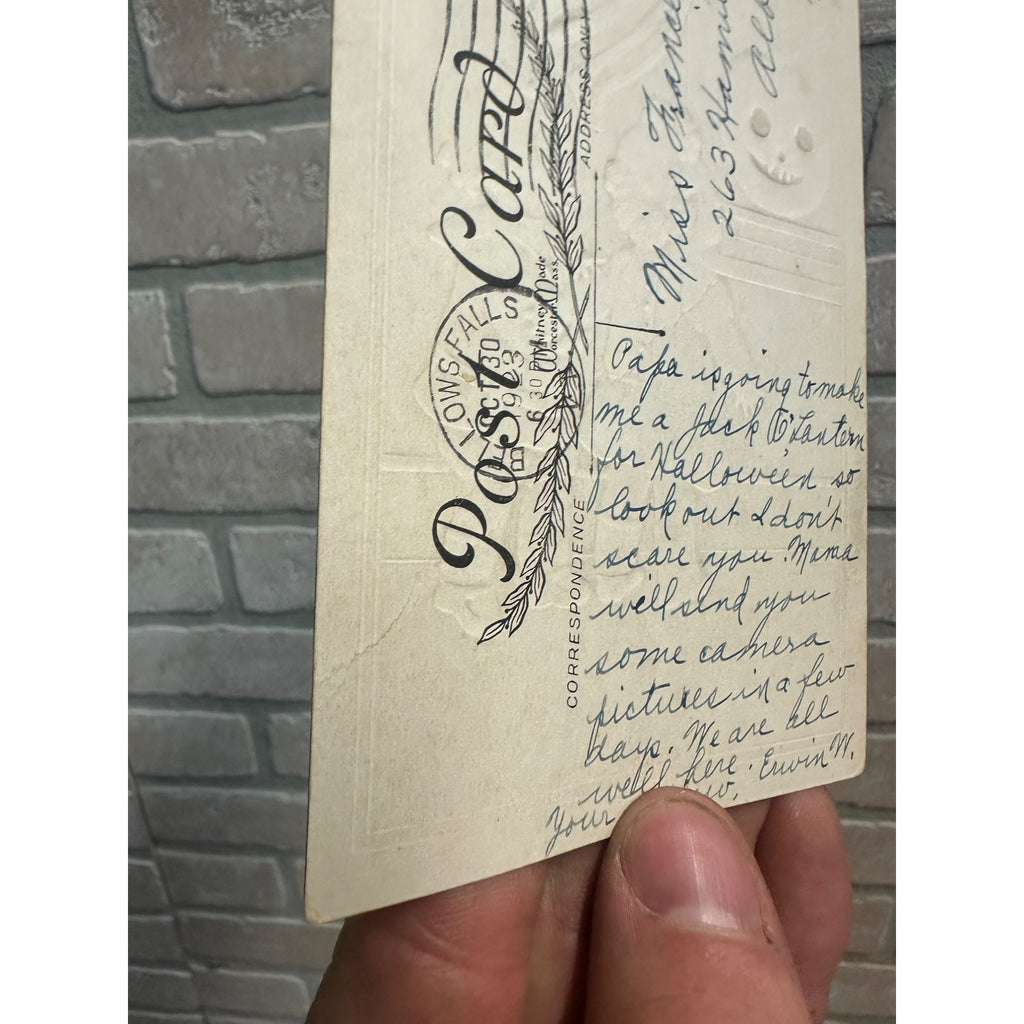 Post Card
LOWS FALLS
OCT 30
6 30 P
1923
Whitney Made
Worcester, Mass.
CORRESPONDENCE
ADDRESS ONLY
Papa is going to make
me a Jack O'Lantern
for Halloween so
look out I don't
scare you. Mama
will send you
some camera
pictures in a few
days. We are all
well here. Erwin W.
Your
Miss
263